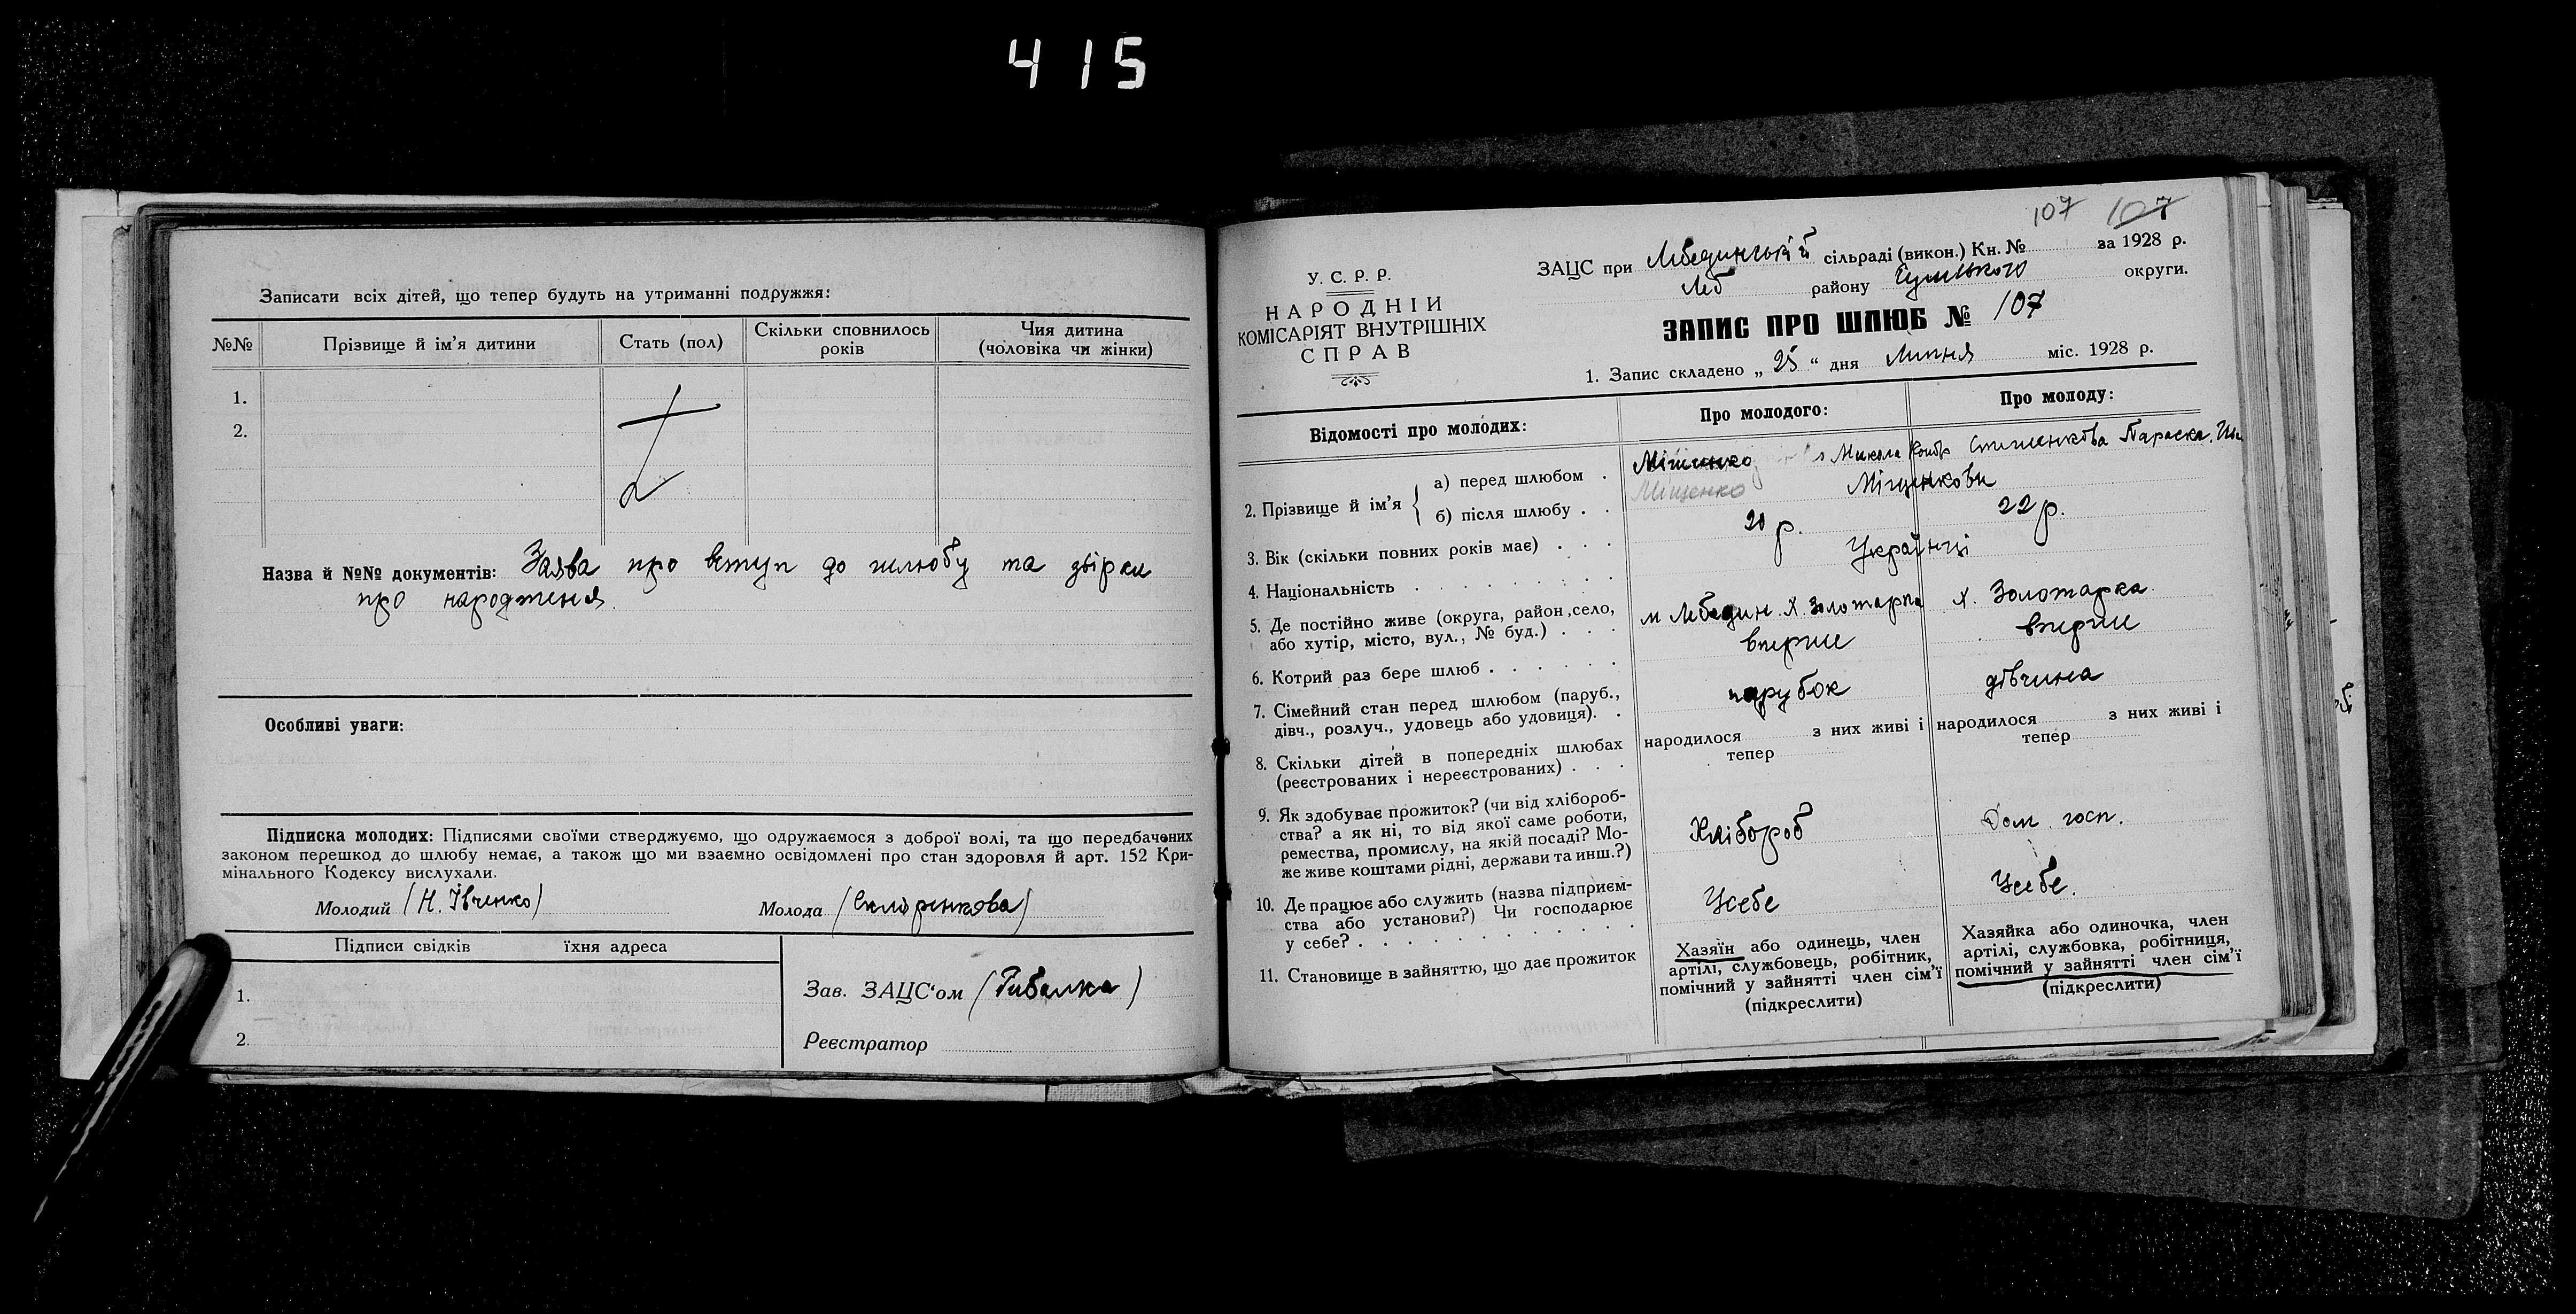 415
Записати всіх дітей, що тепер будуть на утриманні подружжя:
№№ Прізвище й ім'я дитини Стать (пол) Скільки сповнилось років Чия дитина (чоловіка чи жінки)
1.
2.
Назва й №№ документів: Заява про вступ до шлюбу та двірки
про народження.
Особливі уваги:
Підписка молодих: Підписями своїми стверджуємо, що одружаємося з доброї волі, та що передбачених
законом перешкод до шлюбу немає, а також що ми взаємно освідомлені про стан здоровля й арт. 152 Кри-
мінального Кодексу вислухали.
Молодий (Н. Івченко) Молода (Скляренкова)
Підписи свідків їхня адреса
1.
2.
Зав. ЗАЦС'ом (Рибалка)
Реєстратор
107 107
У. С. Р. Р.
НАРОДНІЙ
КОМІСАРІЯТ ВНУТРІШНІХ
СПРАВ
ЗАЦС при Лебединській сільраді (викон.) Кн. № за 1928 р.
Леб району Сумського округи.
ЗАПИС ПРО ШЛЮБ № 107
1. Запис складено „ 25 “ дня Липня міс. 1928 р.
Відомості про молодих: Про молодого: Про молоду:
2. Прізвище й ім'я
а) перед шлюбом . Міщенко Микола Параска
Міщенко
б) після шлюбу . . Міщенкови
3. Вік (скільки повних років має) . . . 20 р. 22 р.
4. Національність . . . . . . . . Українці
5. Де постійно живе (округа, район, село,
або хутір, місто, вул., № буд.) . . . м Лебедин. х. Золотарка х. Золотарка.
6. Котрий раз бере шлюб . . . . . . вперше вперше
7. Сімейний стан перед шлюбом (паруб.,
дівч., розлуч., удовець або удовиця). . парубок дівчина
8. Скільки дітей в попередніх шлюбах
(реєстрованих і нереєстрованих) . . .
народилося з них живі і
тепер
народилося з них живі і
тепер
9. Як здобуває прожиток? (чи від хлібороб-
ства? а як ні, то від якої саме роботи,
ремества, промислу, на якій посаді? Мо-
же живе коштами рідні, держави та инш.?)
Хлібороб Дом. госп.
10. Де працює або служить (назва підприєм-
ства або установи?) Чи господарює
у себе? . . . . . . . . . . . .
Усебе Усебе.
11. Становище в зайняттю, що дає прожиток
Хазяїн або одинець, член
артілі, службовець, робітник,
помічний у зайнятті член сім'ї
(підкреслити)
Хазяйка або одиночка, член
артілі, службовка, робітниця,
помічний у зайнятті член сім'ї
(підкреслити)